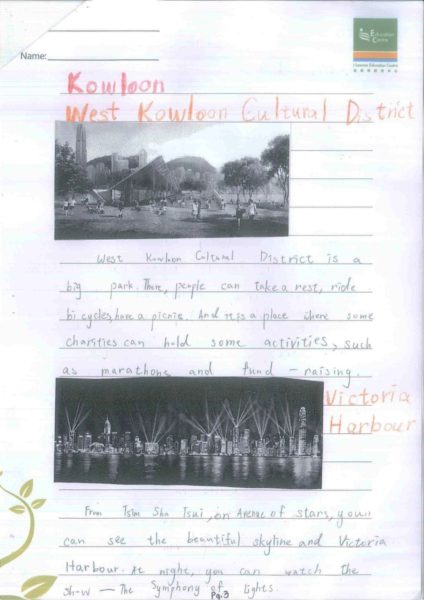 Education
Centre
Name:
Kowloon
West Kowloon Cultural District
West Kowloon Cultural District is a
big park. There, people can take a rest, ride
bicycles, have a picnic. And it is a place where some
charities can hold some activities, such
as marathons and fund-raising.
Victoria
Harbour
From Tsim Sha Tsui, on Avenue of stars, you
can see the beautiful skyline and Victoria
Harbour. At night, you can watch the
show — The Symphony of Lights.
Pg.3